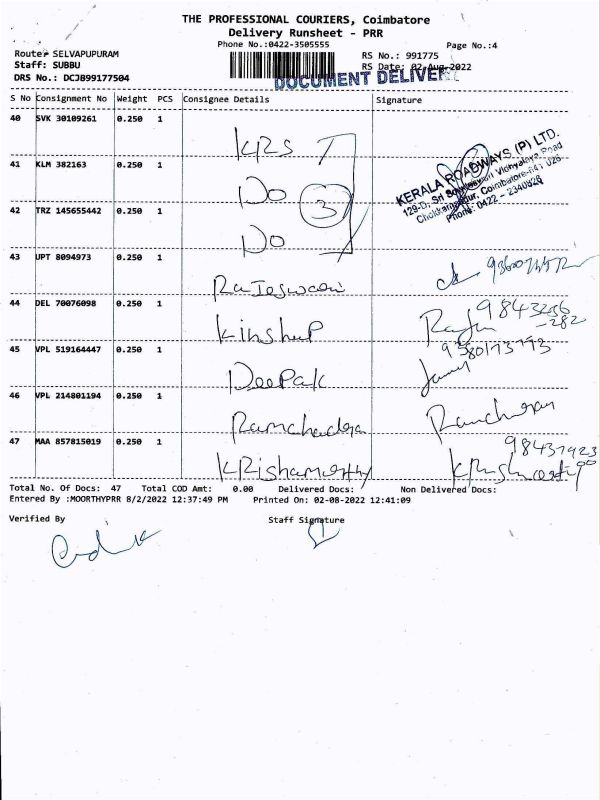 THE PROFESSIONAL COURIERS, Coimbatore
Delivery Runsheet - PRR
Phone No.:0422-3505555 Page No.:4
Route: SELVAPUPURAM RS No.: 991775
Staff: SUBBU RS Date: 02-Aug-2022
DRS No.: DCJB99177504
DOCUMENT DELIVER
S No Consignment No Weight PCS Consignee Details Signature
40 SVK 30109261 0.250 1
KRS
41 KLM 382163 0.250 1
Do 3
KERALA ROADWAYS (P) LTD.
129-D, Sri Vidhyalaya Road
Coimbatore-641 026
Phone: 0422 - 2340626
42 TRZ 145655442 0.250 1
Do
43 UPT 8094973 0.250 1
Rajeswari
44 DEL 70076098 0.250 1
Kinship
45 VPL 519164447 0.250 1
9380173793
Deepak
46 VPL 214801194 0.250 1
Ramchandra
47 MAA 857815019 0.250 1
KRishamoorthy
Total No. Of Docs: 47 Total COD Amt: 0.00 Delivered Docs: Non Delivered Docs:
Entered By :MOORTHYPRR 8/2/2022 12:37:49 PM Printed On: 02-08-2022 12:41:09
Verified By Staff Signature